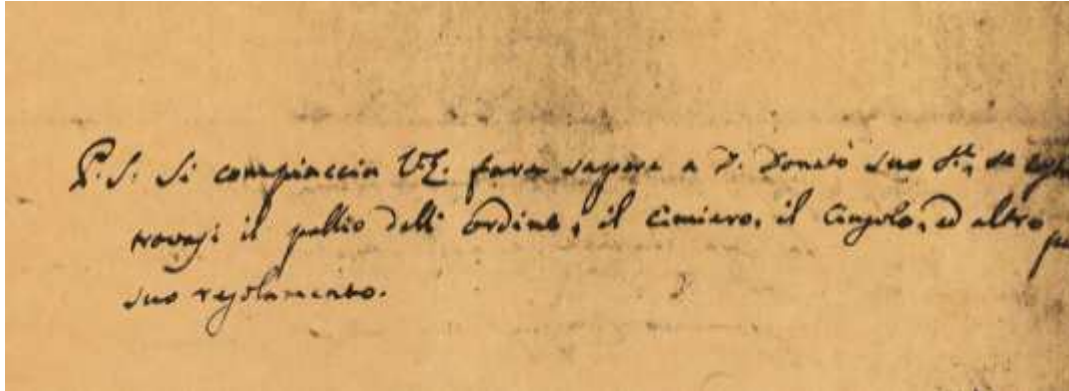 P. S. Si compiaccia V.E. farer sapere a D. Donato suo
trovasi il pallio delli ordine, il Cimiero, il Cingolo, ed altro
suo regolamento.